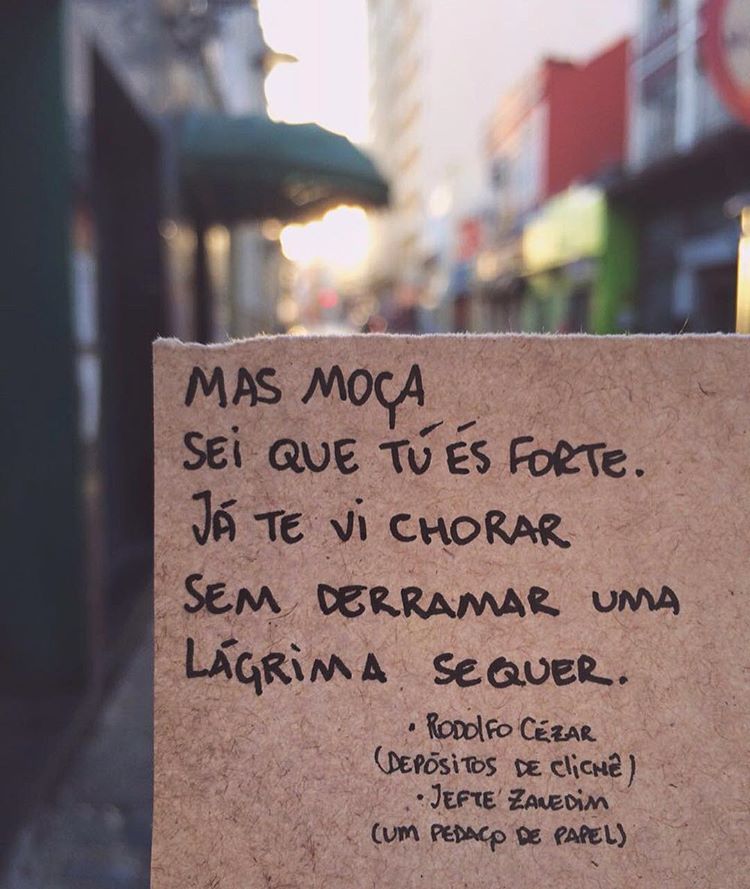 MAS MOÇA
SEI QUE TÚ ÉS FORTE.
JÁ TE VI CHORAR
SEM DERRAMAR UMA
LÁGRIMA SEQUER.
• RODOLFO CÉZAR
(DEPÓSITOS DE CLICHÊ)
• JEFTE ZANEDIM
(UM PEDAÇO DE PAPEL)